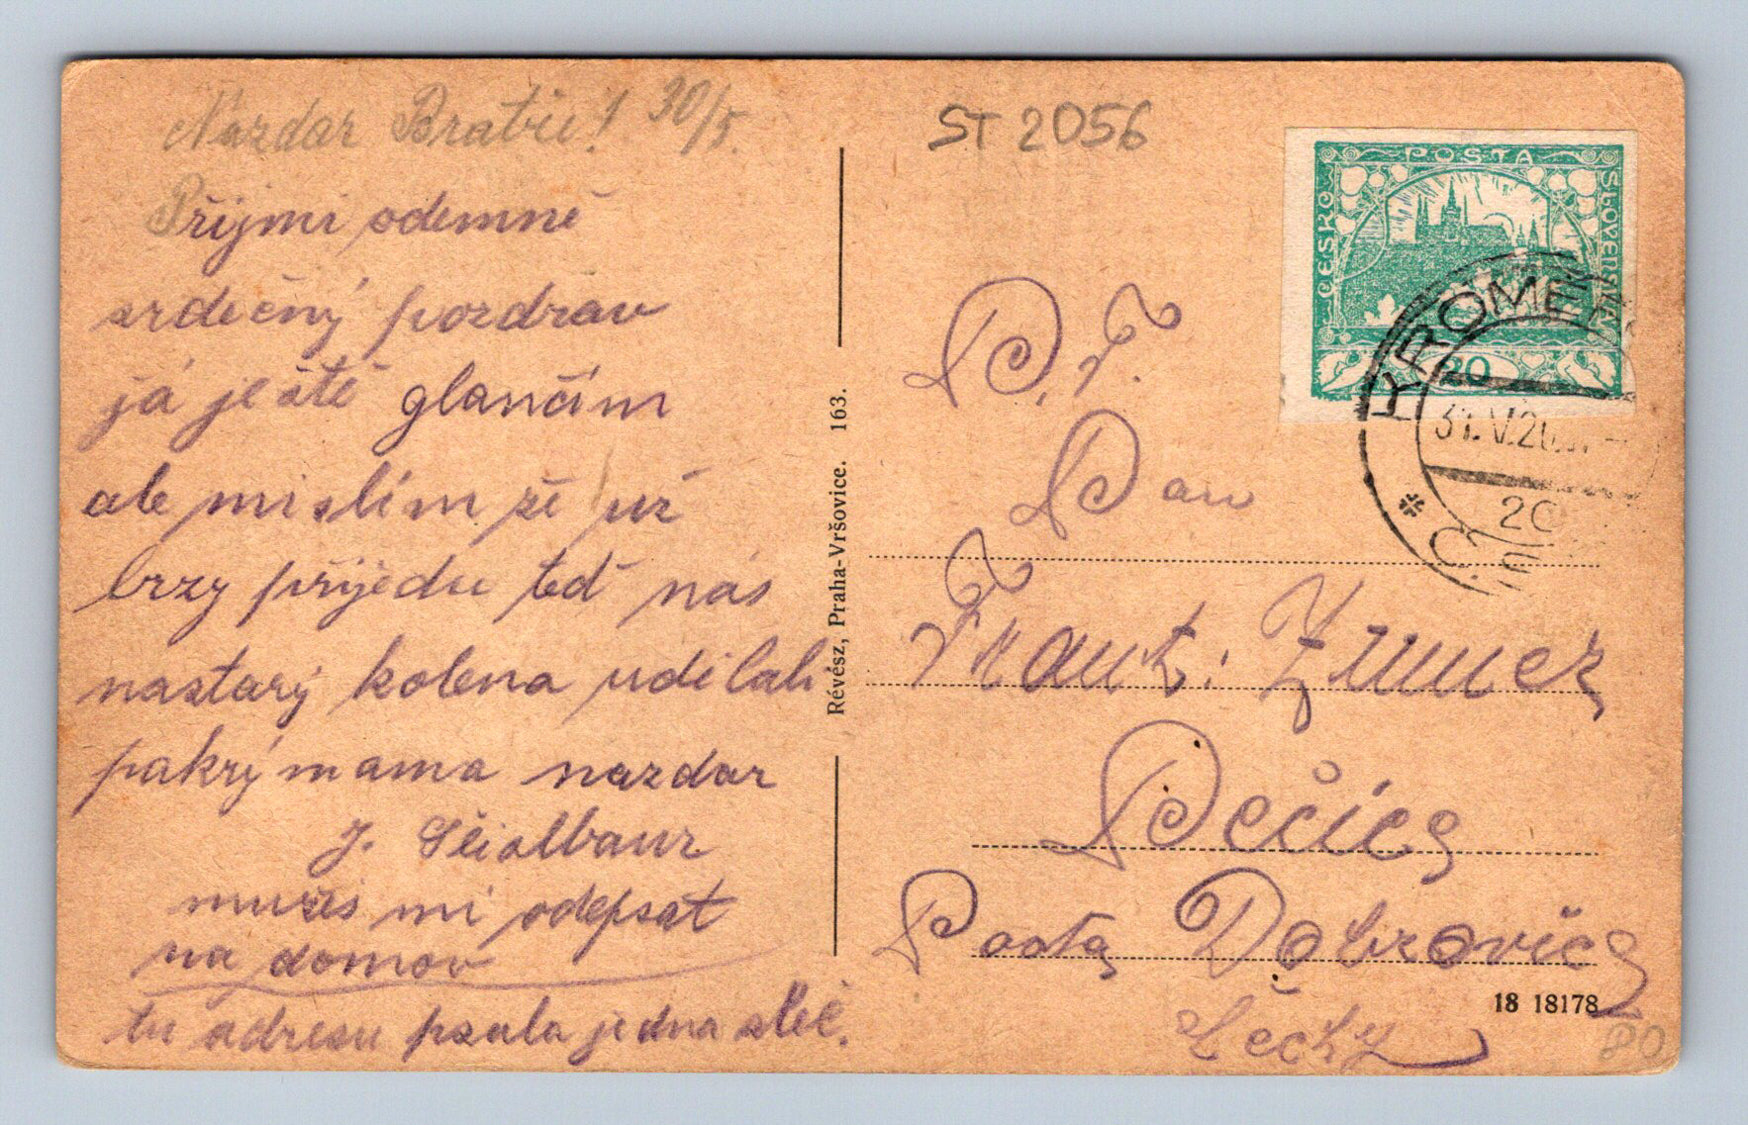 Nazdar Bratře! 30/5.
Přijmi odemně
srdečný pozdrav
já ještě glančím
ale mislím že už
brzy přijedu teď nás
nastarý kolena udělali
pakrý mama nazdar
J.
mužeš mi odepsat
na domov
tu adresu psala jedna sleč.
Révész, Praha-Vršovice. 163.
ST 2056
POŠTA
ČESKO
SLOVENSKÁ
20
KROMĚ
31.V.20
20
P.T.
Pan
Frant.
Pečice
Pošta Dobrovice
Čechy
18 18178
80